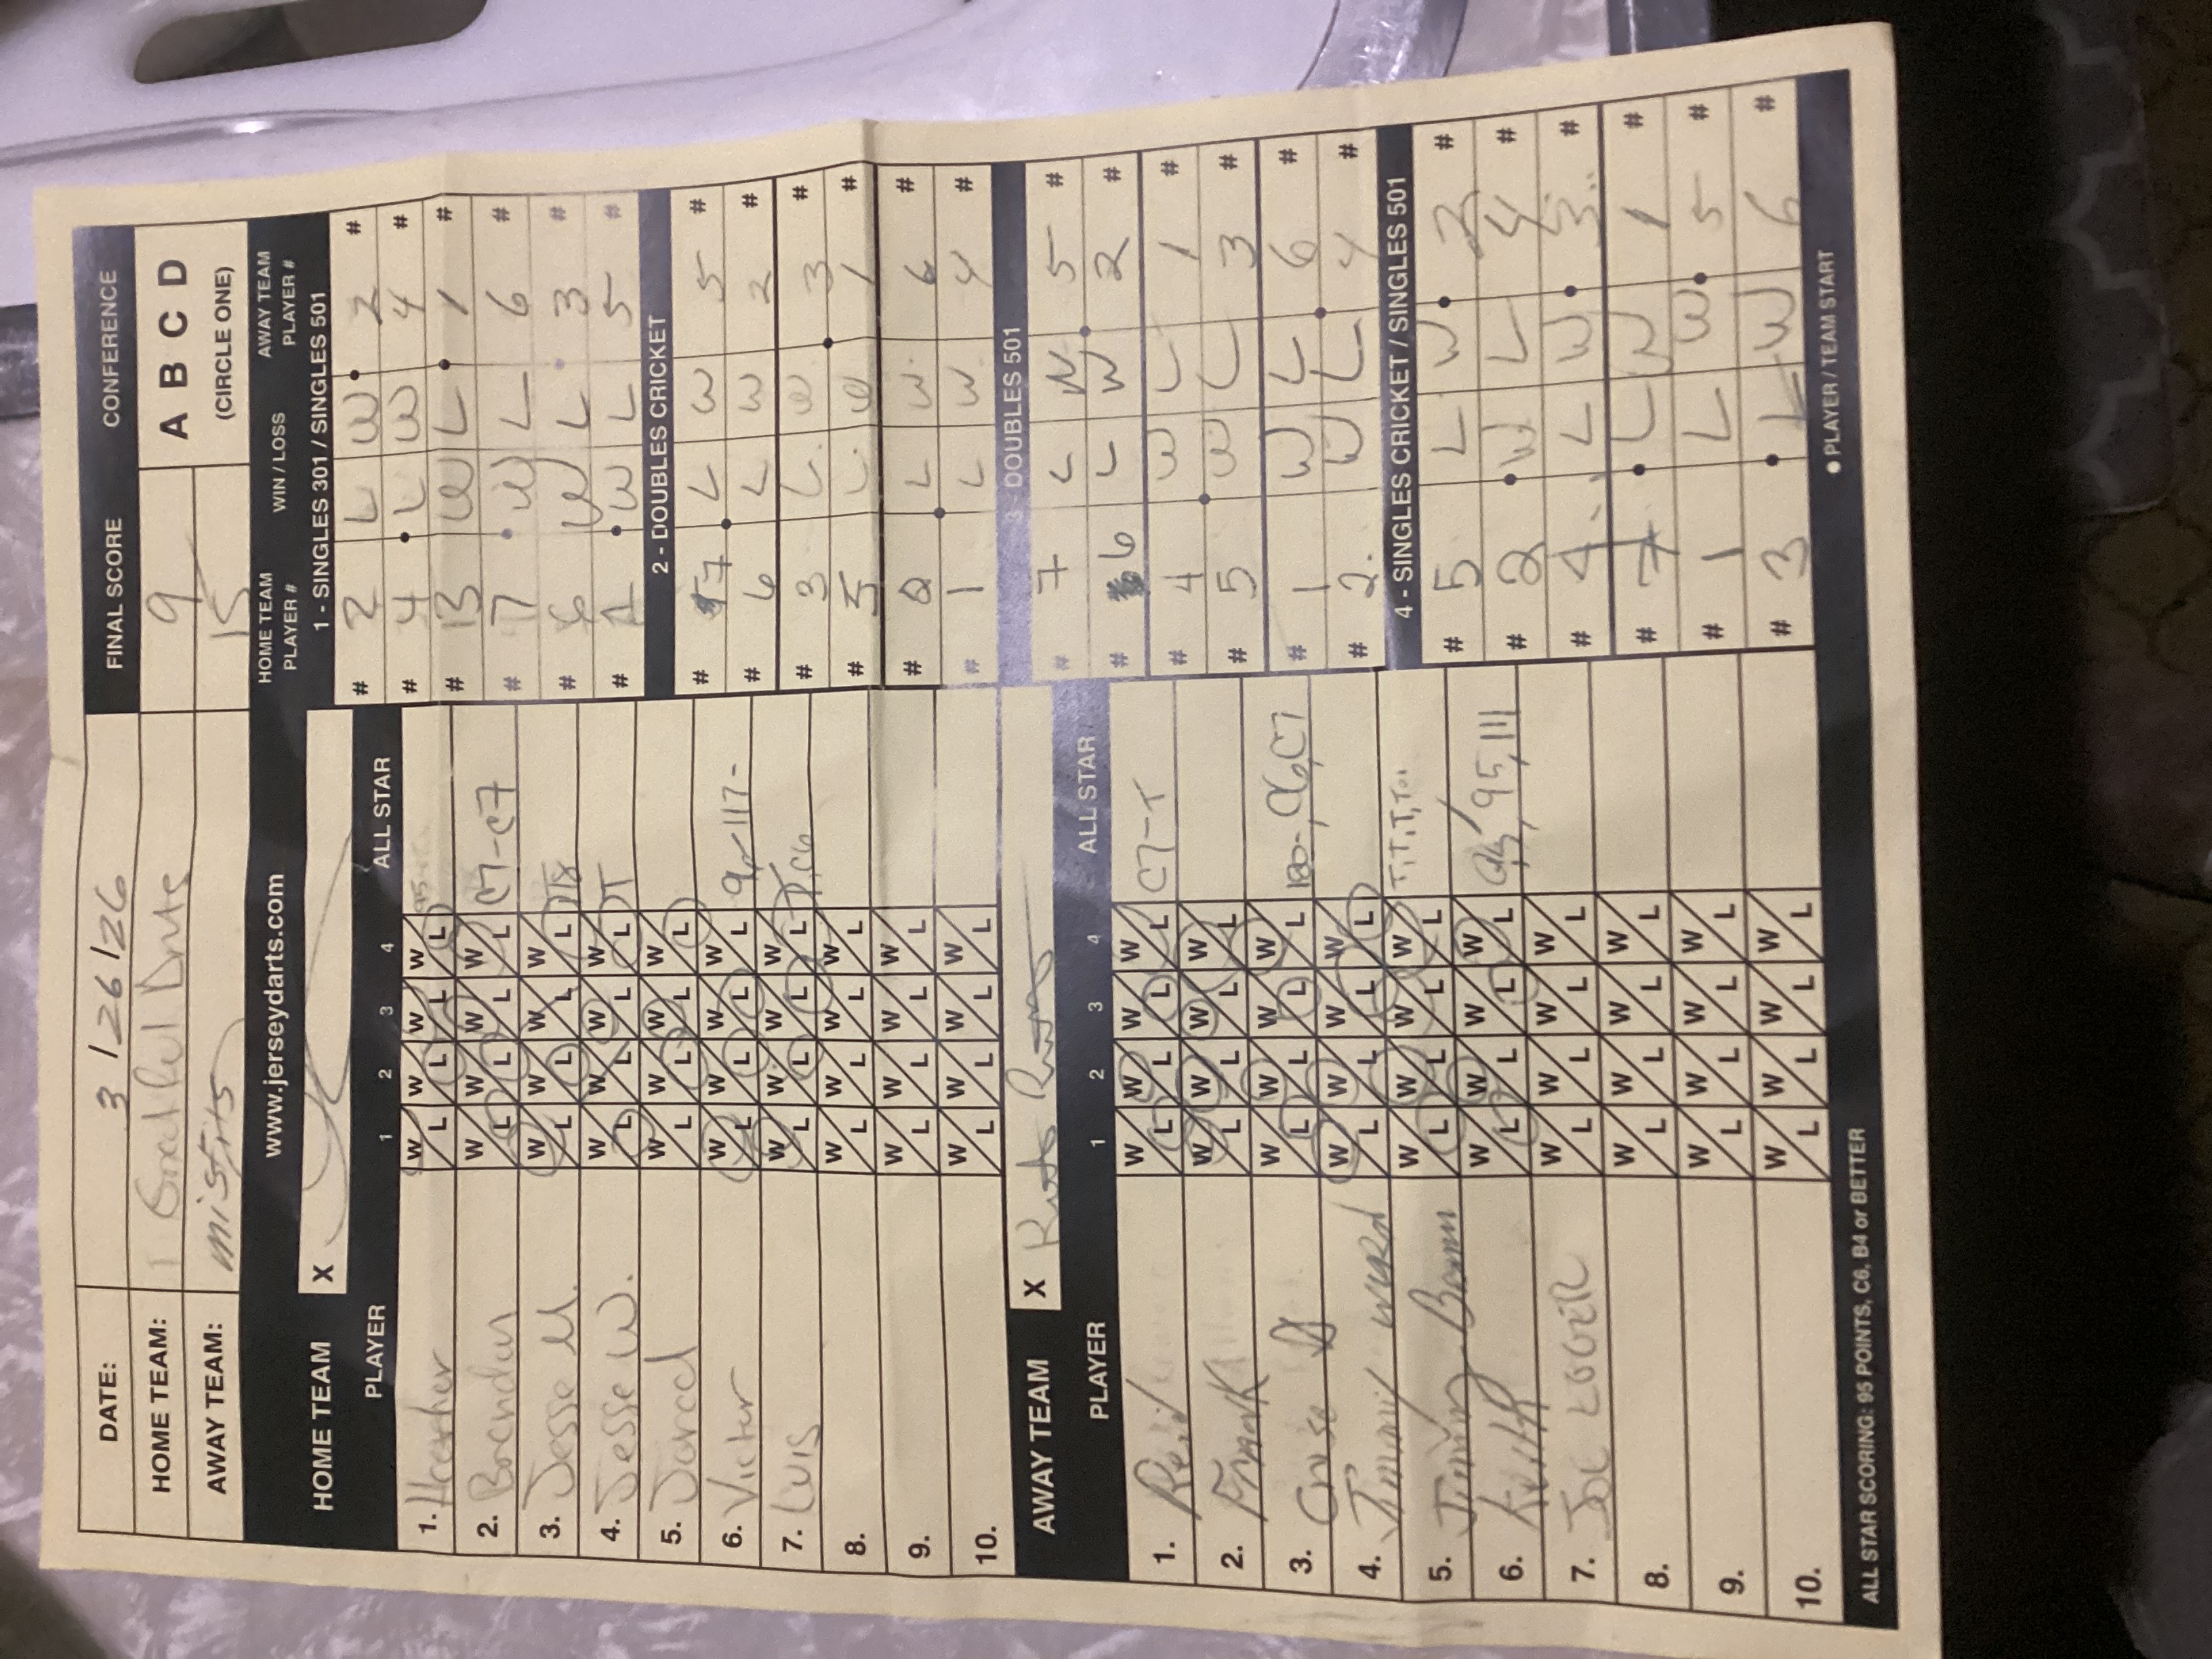 DATE: 3/26/26 FINAL SCORE CONFERENCE
HOME TEAM: 9 A B C D
AWAY TEAM: misfits 15 (CIRCLE ONE)
www.jerseydarts.com
HOME TEAM X
PLAYER 1 2 3 4 ALL STAR
1. Heather W L W L W L W L 95
2. Brendan W L W L W L W L C7-C7
3. Jesse M. W L W L W L W L
4. Jesse W. W L W L W L W L T
5. Jared W L W L W L W L
6. Victor W L W L W L W L 117-
7. Luis W L W L W L W L C6
8. W L W L W L W L
9. W L W L W L W L
10. W L W L W L W L
AWAY TEAM X
PLAYER 1 2 3 4 ALL STAR
1. W L W L W L W L C7-T
2. Frank W L W L W L W L
3. W L W L W L W L 180-, C6, C7
4. Jimmy Ward W L W L W L W L
5. Jimmy W L W L W L W L T, T, T, T
6. Keith W L W L W L W L 95, 111
7. Joe W L W L W L W L
8. W L W L W L W L
9. W L W L W L W L
10. W L W L W L W L
HOME TEAM PLAYER # WIN / LOSS AWAY TEAM PLAYER #
1 - SINGLES 301 / SINGLES 501
# 2 L W 2 #
# 4 L W 4 #
# 3 W L 1 #
# 7 W L 6 #
# 6 W L 3 #
# 1 W L 5 #
2 - DOUBLES CRICKET
# 7 L W 5 #
# 6 L W 2 #
# 3 L W 3 #
# 5 L W 1 #
# 2 L W 6 #
# 1 L W 4 #
3 - DOUBLES 501
# 7 L W 5 #
# 6 L W 2 #
# 4 W L 1 #
# 5 W L 3 #
# 1 W L 6 #
# 2 W L 4 #
4 - SINGLES CRICKET / SINGLES 501
# 5 L W 2 #
# 2 W L 4 #
# 4 L W 3 #
# 7 L W 1 #
# 1 L W 5 #
# 3 L W 6 #
● PLAYER / TEAM START
ALL STAR SCORING: 95 POINTS, C6, B4 or BETTER